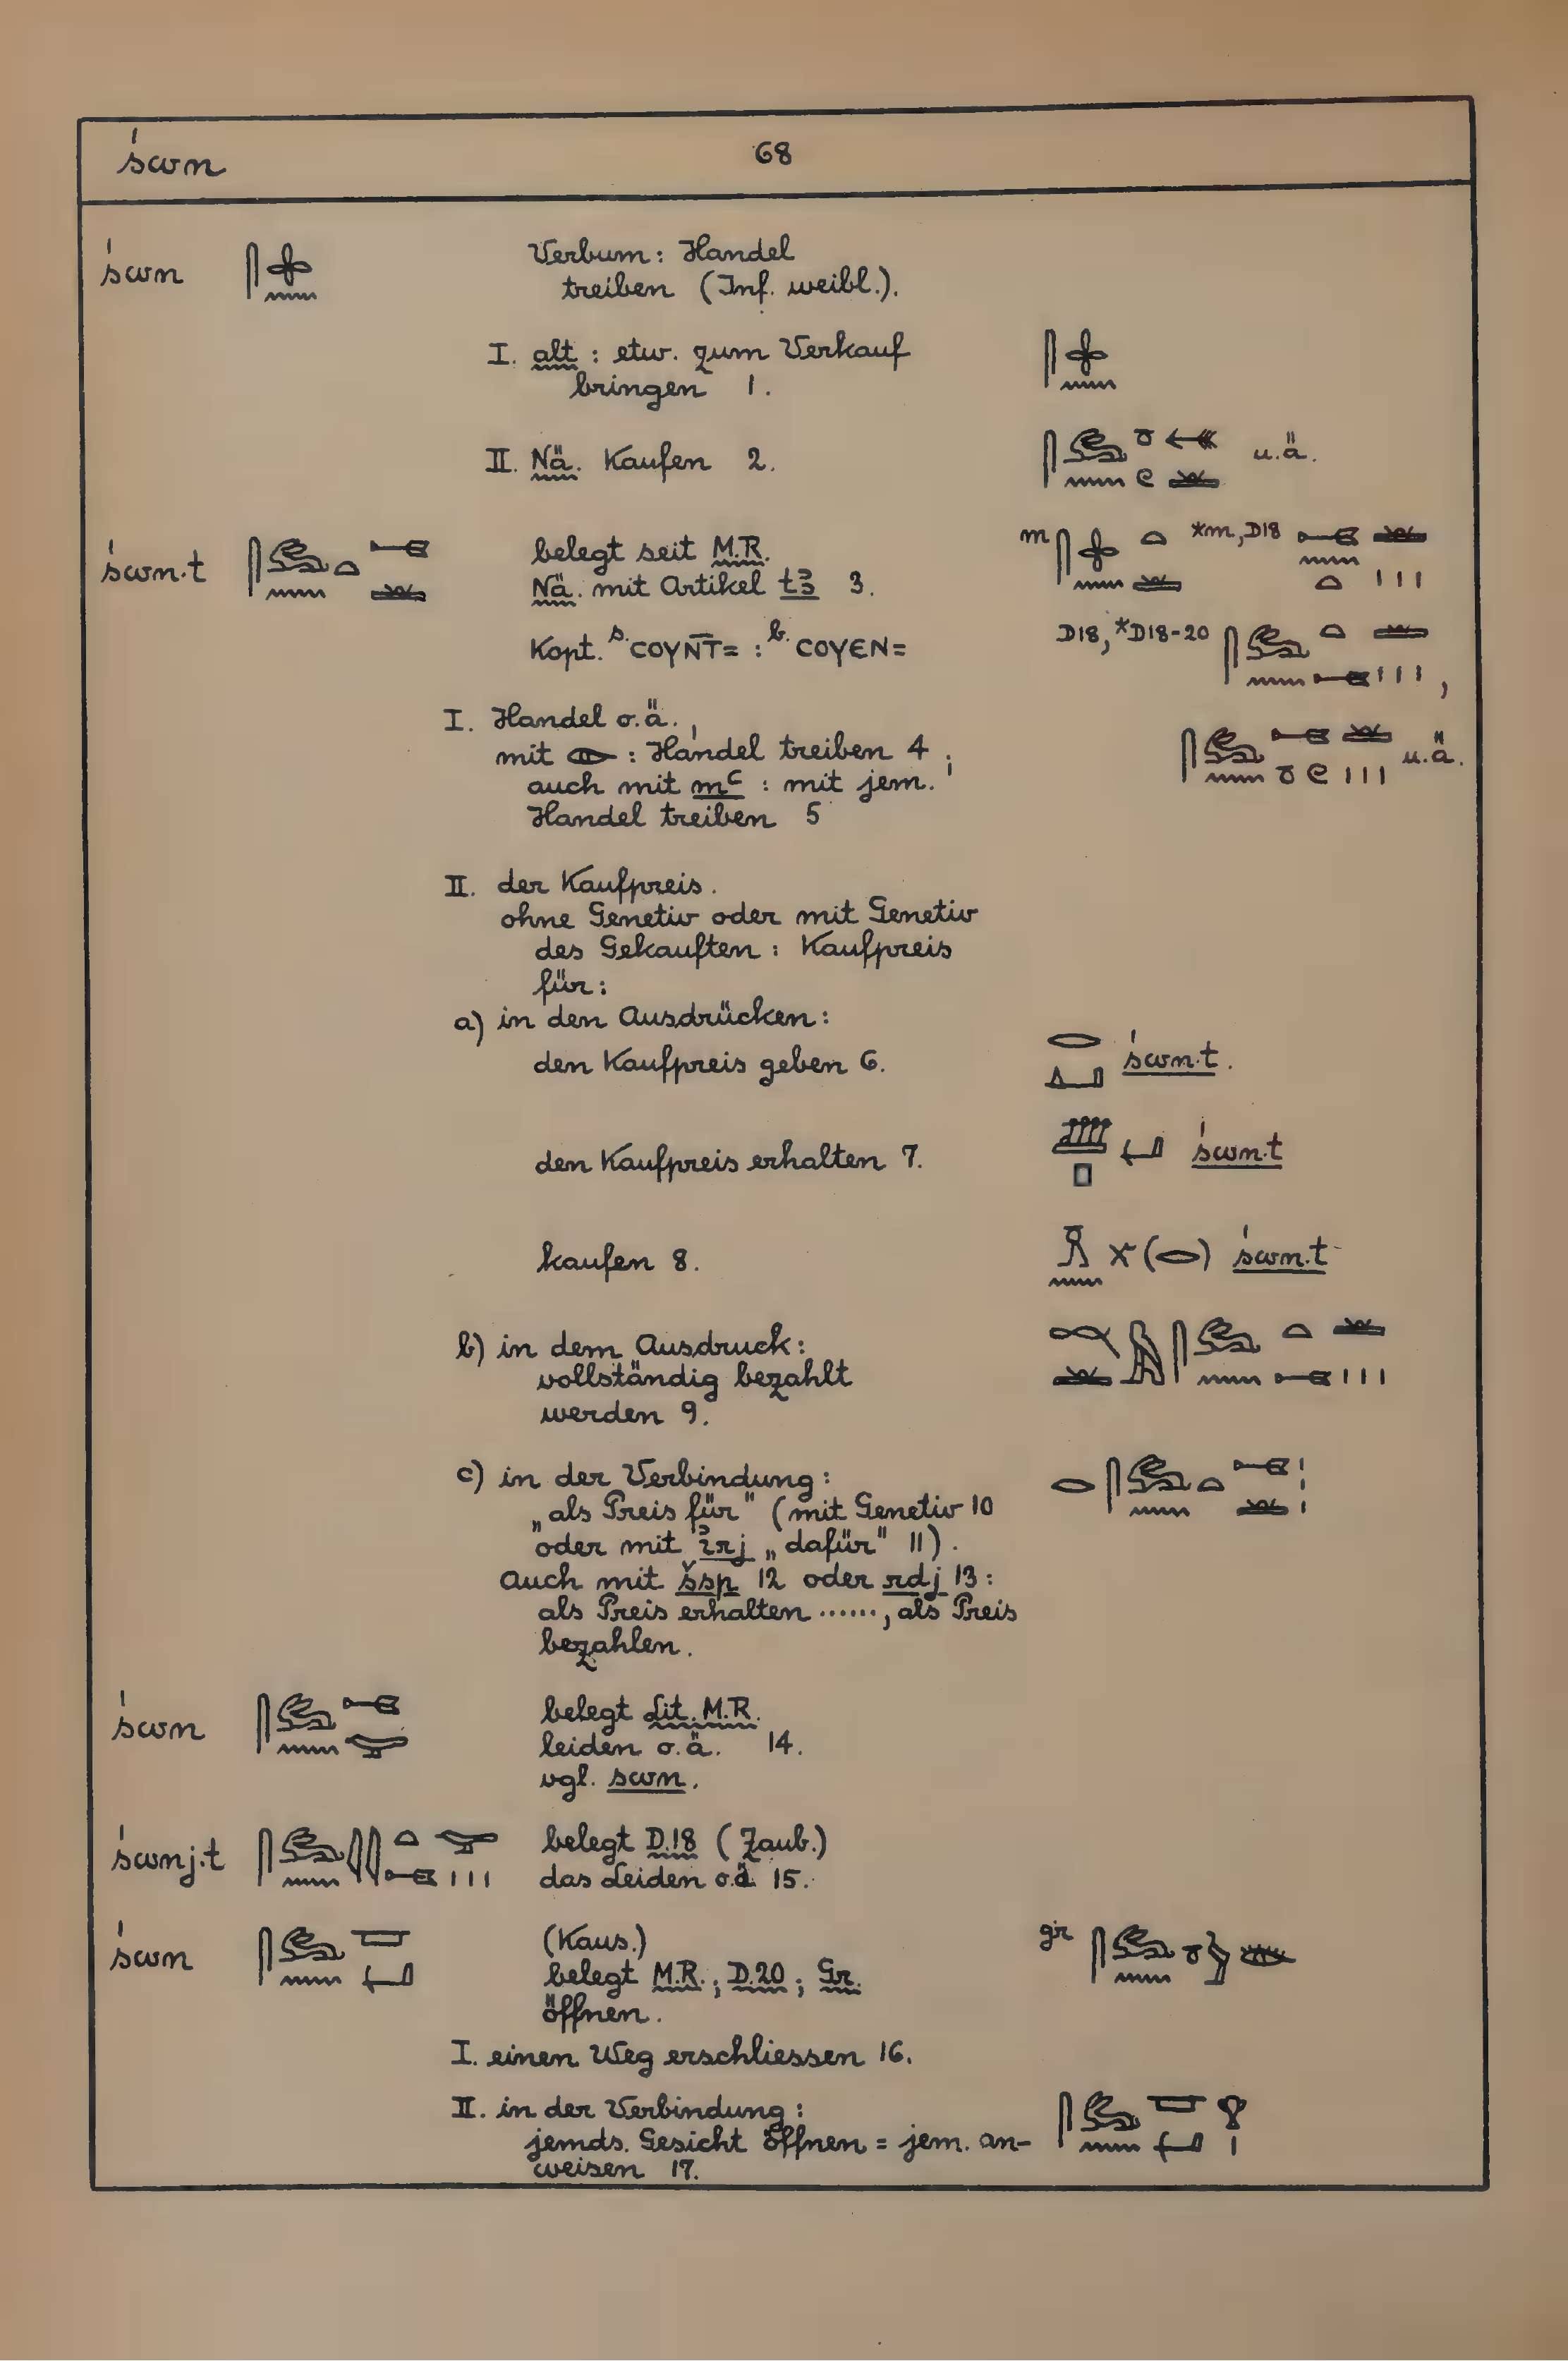 śwn 68
śwn Verbum: Handel
treiben (Inf. weibl.).
I. alt: etw. zum Verkauf
bringen 1.
II. Nä. Kaufen 2. u.ä.
śwn·t belegt seit M.R. m *m, D18
Nä. mit Artikel tꜣ 3.
Kopt. s. ⲥⲟⲩⲛ̄ⲧ̄= : b. ⲥⲟⲩⲉⲛ= D18, *D18-20 ,
I. Handel o.ä.,
mit 𓁹 : Handel treiben 4; u.ä.
auch mit mꜥ : mit jem.
Handel treiben 5
II. der Kaufpreis.
ohne Genetiv oder mit Genetiv
des Gekauften: Kaufpreis
für:
a) in den Ausdrücken:
den Kaufpreis geben 6. śwn·t.
den Kaufpreis erhalten 7. śwn·t
kaufen 8. (𓂋) śwn·t
b) in dem Ausdruck:
vollständig bezahlt
werden 9.
c) in der Verbindung:
„als Preis für" (mit Genetiv 10
oder mit ꞽrj „dafür" 11).
Auch mit šsp 12 oder rdj 13:
als Preis erhalten ......, als Preis
bezahlen.
śwn belegt Lit. M.R.
leiden o.ä. 14.
vgl. swn.
śwnj·t belegt D.18 (Zaub.)
das Leiden o.ä. 15.
śwn (Kaus.) gr
belegt M.R.; D.20; Gr.
öffnen.
I. einen Weg erschliessen 16.
II. in der Verbindung:
jemds. Gesicht öffnen = jem. an-
weisen 17.